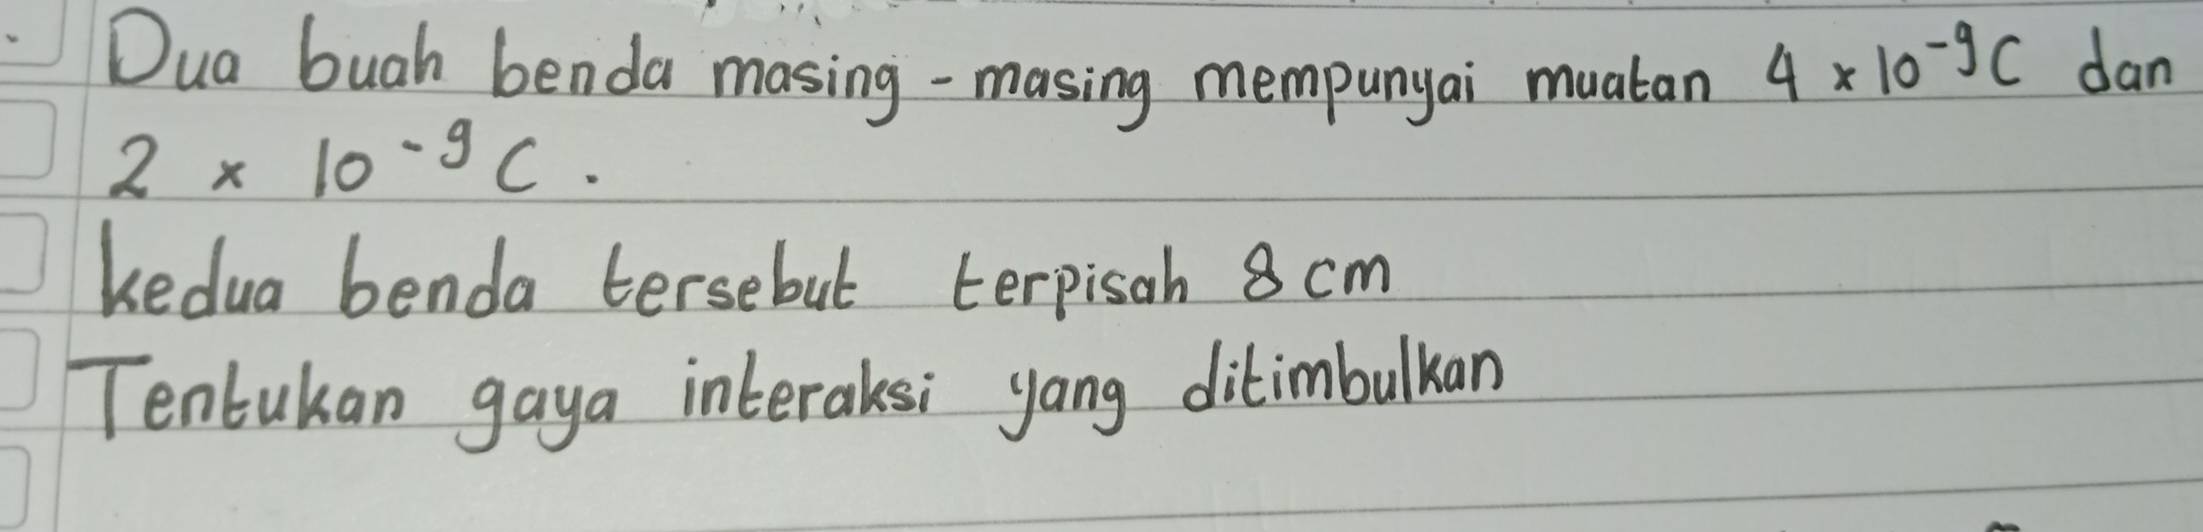 Dua buah benda masing-masing mempunyai muatan 4 × 10⁻⁹C dan
2 × 10⁻⁹ C.
kedua benda tersebut terpisah 8 cm
Tentukan gaya interaksi yang ditimbulkan